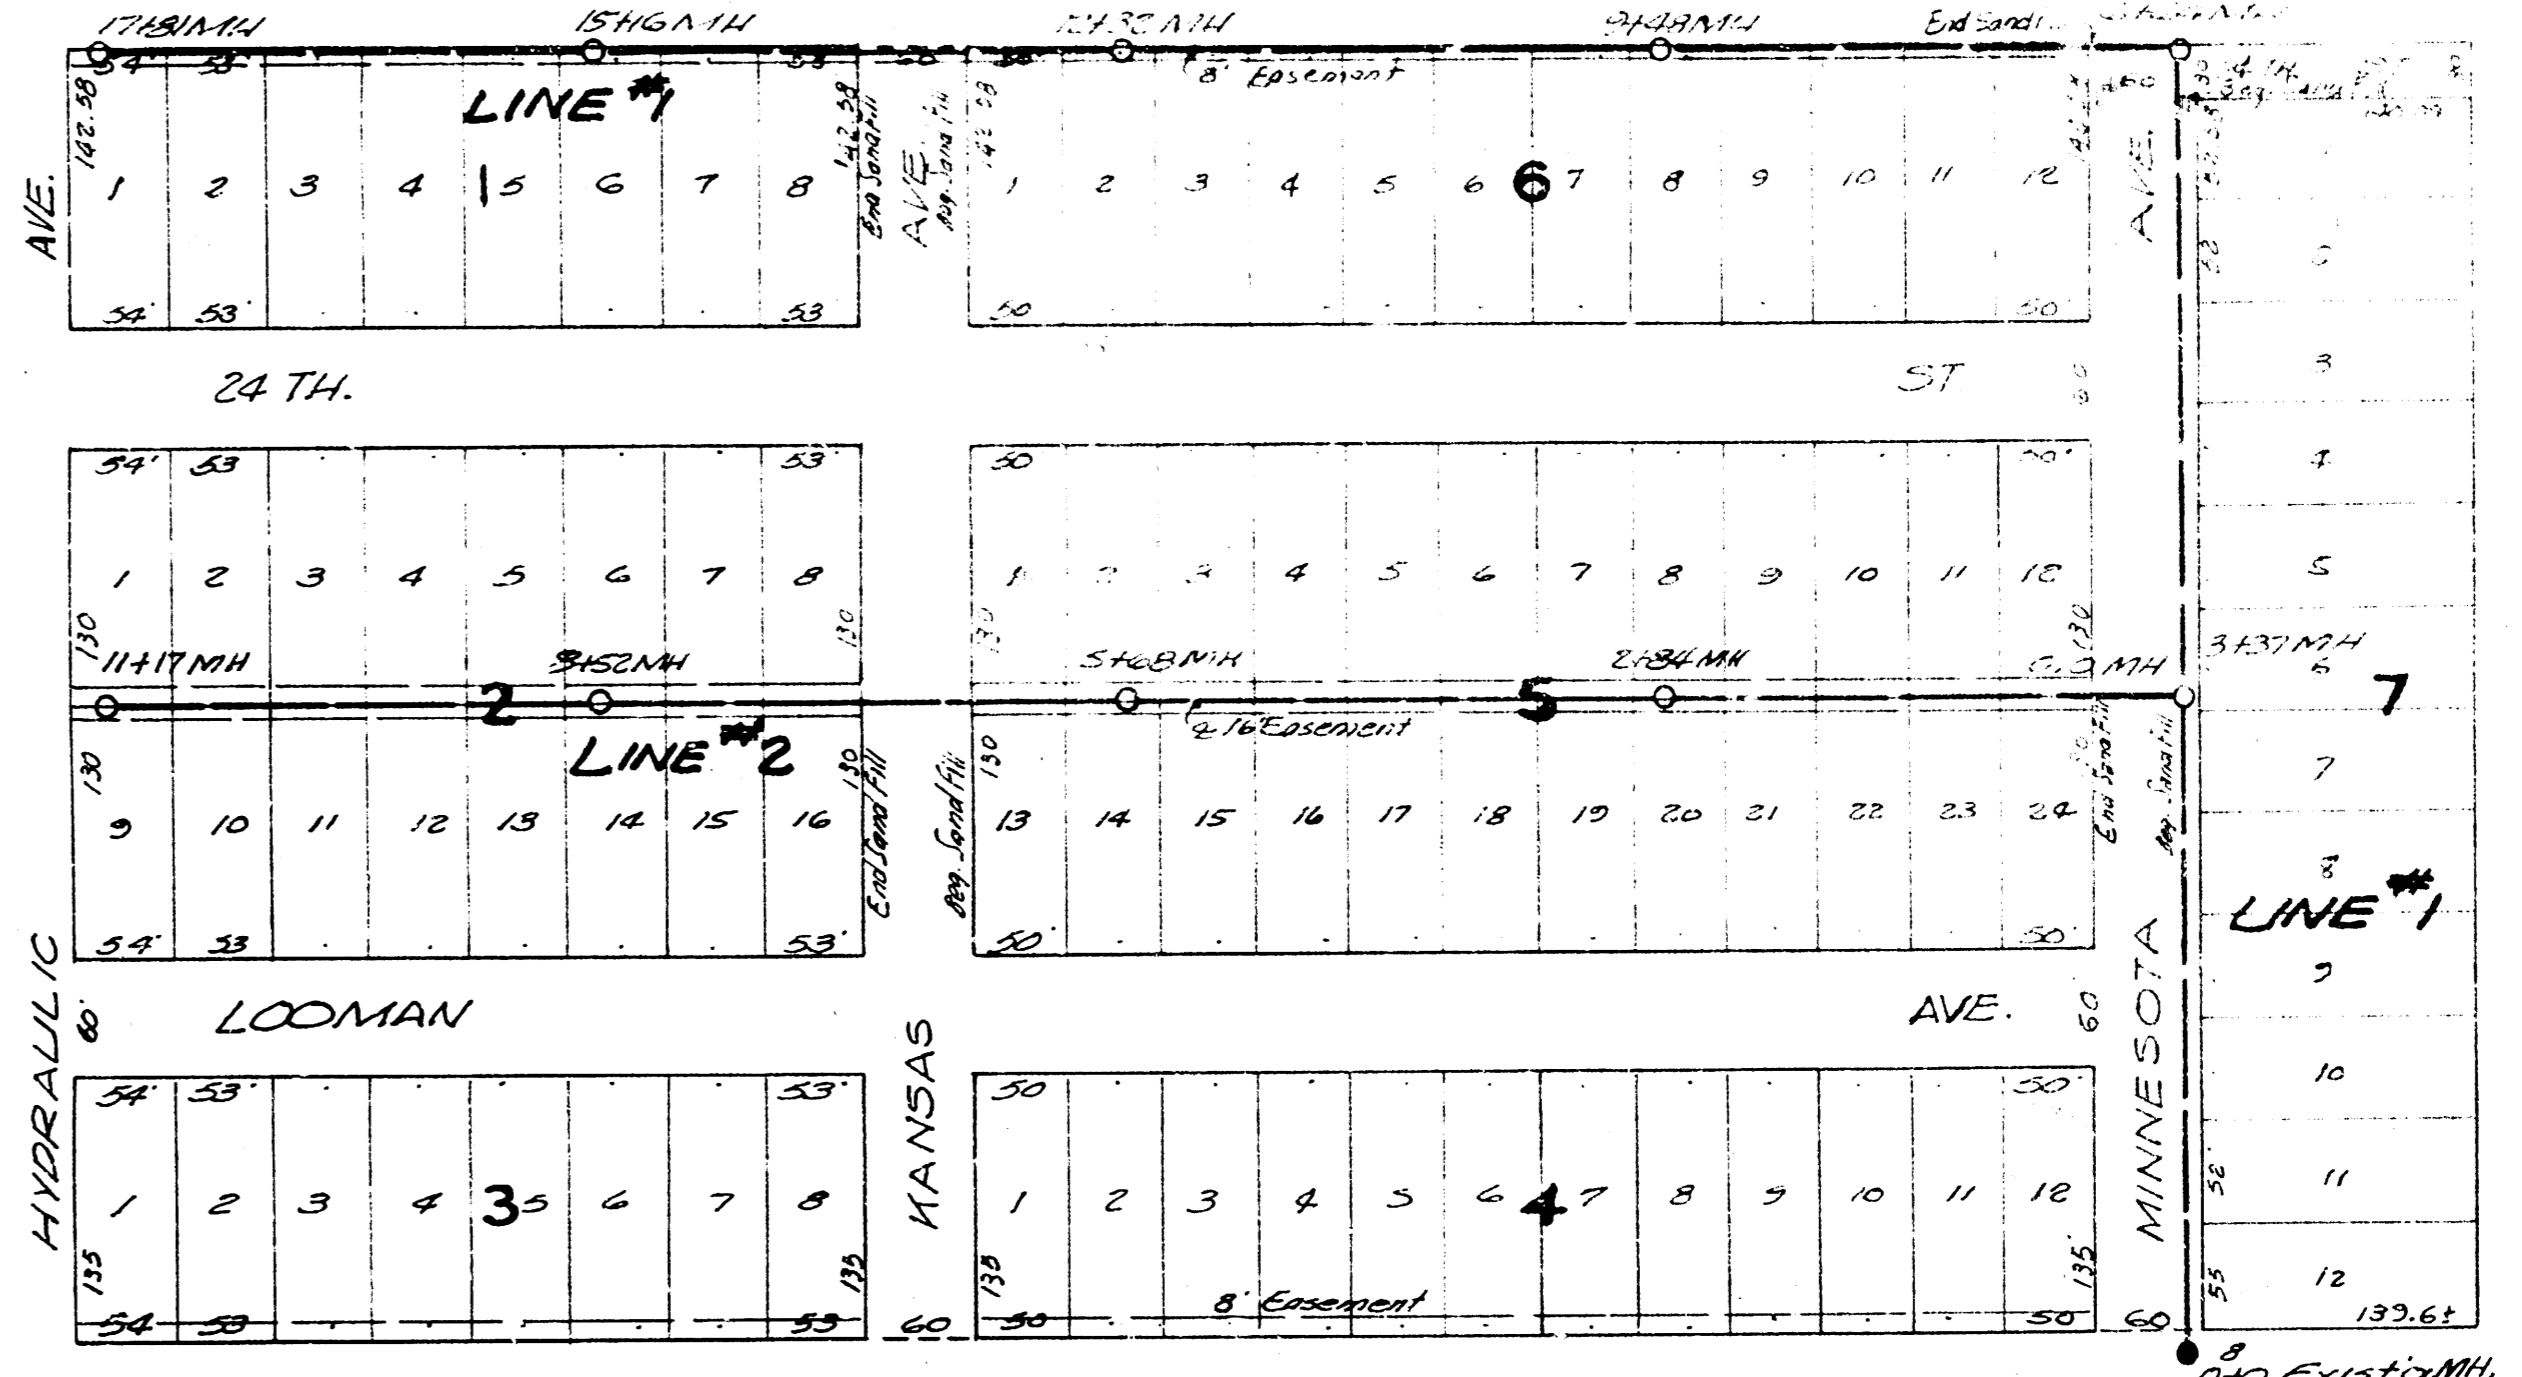 17+81MH 15+16MH 12+32MH 9+48MH End Sand
54' 53' 53 60 50
8' Easement
LINE #1
142.58 142.58 142.58
End Sand Fill
AVE.
Beg. Sand Fill
AVE.
AVE.
60 30
52
1 2 3 4 1 5 6 7 8
1 2 3 4 5 6 6 7 8 9 10 11 12
54' 53' 53 50 50
24 TH. ST
60
3
4
5
54' 53 53' 50 50'
1 2 3 4 5 6 7 8
1 2 3 4 5 6 7 8 9 10 11 12
130 130 130 130
11+17MH 8+52MH 5+68MH 2+84MH 0+0 MH 3+37MH
6
2 5 7
¢ 16' Easement
LINE #2
130 130 130
End Sand Fill
Beg. Sand Fill
End Sand Fill
Beg. Sand Fill
7
8
9 10 11 12 13 14 15 16
13 14 15 16 17 18 19 20 21 22 23 24
LINE #1
54' 53 53' 50' 50'
9
HYDRAULIC
60'
LOOMAN AVE.
60
KANSAS
MINNESOTA
10
54' 53' 53' 50 50'
1 2 3 4 3 5 6 7 8
1 2 3 4 5 6 4 7 8 9 10 11 12
52'
11
135 135 135 135'
55
12
8' Easement
54 53 53 60 50 50 60
139.6±
8
0+0 Existing MH.